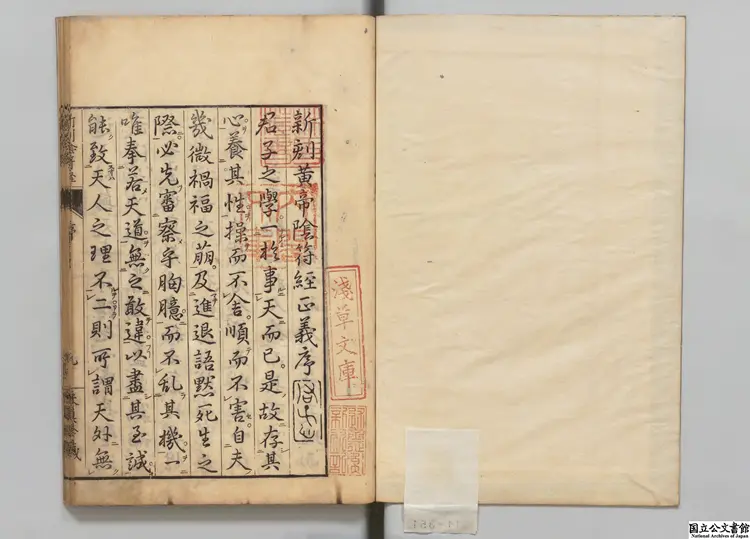 新刻黄帝陰符經正義序
君子之學一於事天而已是故存其
心養其性操而不舍順而不害自夫
幾微禍福之萠及進退語黙死生之
際必先審察乎胸臆而不乱其機一
唯奉若天道無之敢違以盡其至誠
能致天人之理不二則可謂天外無
序
淺草文庫
国立公文書館
National Archives of Japan